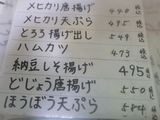 メヒカリ唐揚げ
メヒカリ天ぷら
とろろ揚げ出し 549
ハムカツ 473
納豆しそ揚げ 495
どじょう唐揚げ 550
ほうぼう天ぷら 584